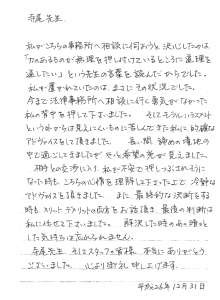 寺尾先生
私がこちらの事務所へ相談に伺おうと決心したのは
「力のあるものが無理を押し付けているところに道理を
通したい」という先生の言葉を読んだからでした。
私が置かれていたのは、まさにその状況でした。
今まで法律事務所へ相談に行く勇気がなかった
私の背中を押して下さいました。そしてモラルハラスメント
という外からは見えにくいものに苦しんできた私に、的確な
アドヴァイスをして頂きました。長い間 諦めの境地の
中で過ごしてきましたが やっと希望の光が見えました。
相手との交渉に入り 私が不安で押しつぶされそうに
なった時も こちらの心情を理解して下さった上で 冷静な
アドヴァイスを頂きました。また、最終的な決断をする
時も メリット デメリットの両方をお話頂き、最後の判断は
私に任せて下さいました。解決した時のあの晴々と
した気持ちは忘れられません。
寺尾先生、そしてスタッフの皆様 本当にありがとう
ございました。心より御礼申し上げます。
平成26年12月31日